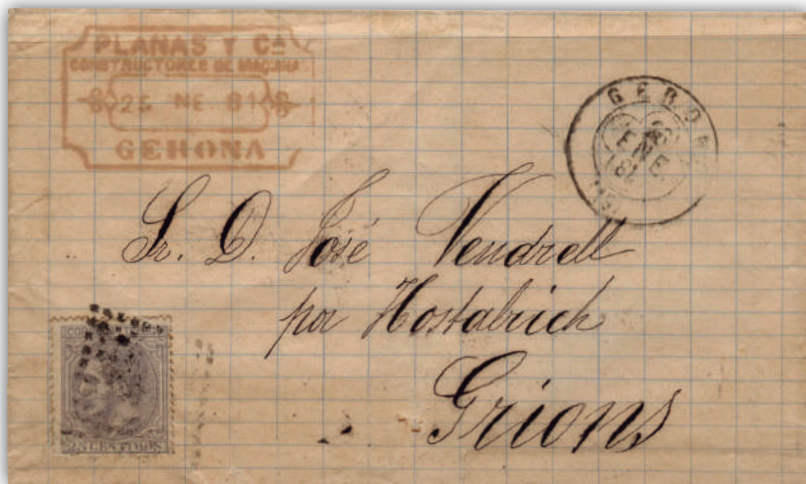 PLANAS Y Cª
CONSTRUCTORES DE MAQUINAS
25 NE 81
GERONA
GERONA
26
ENE
81
Sr. D. José Vendrell
por Hostalrich
Grions
25 CENTIMOS